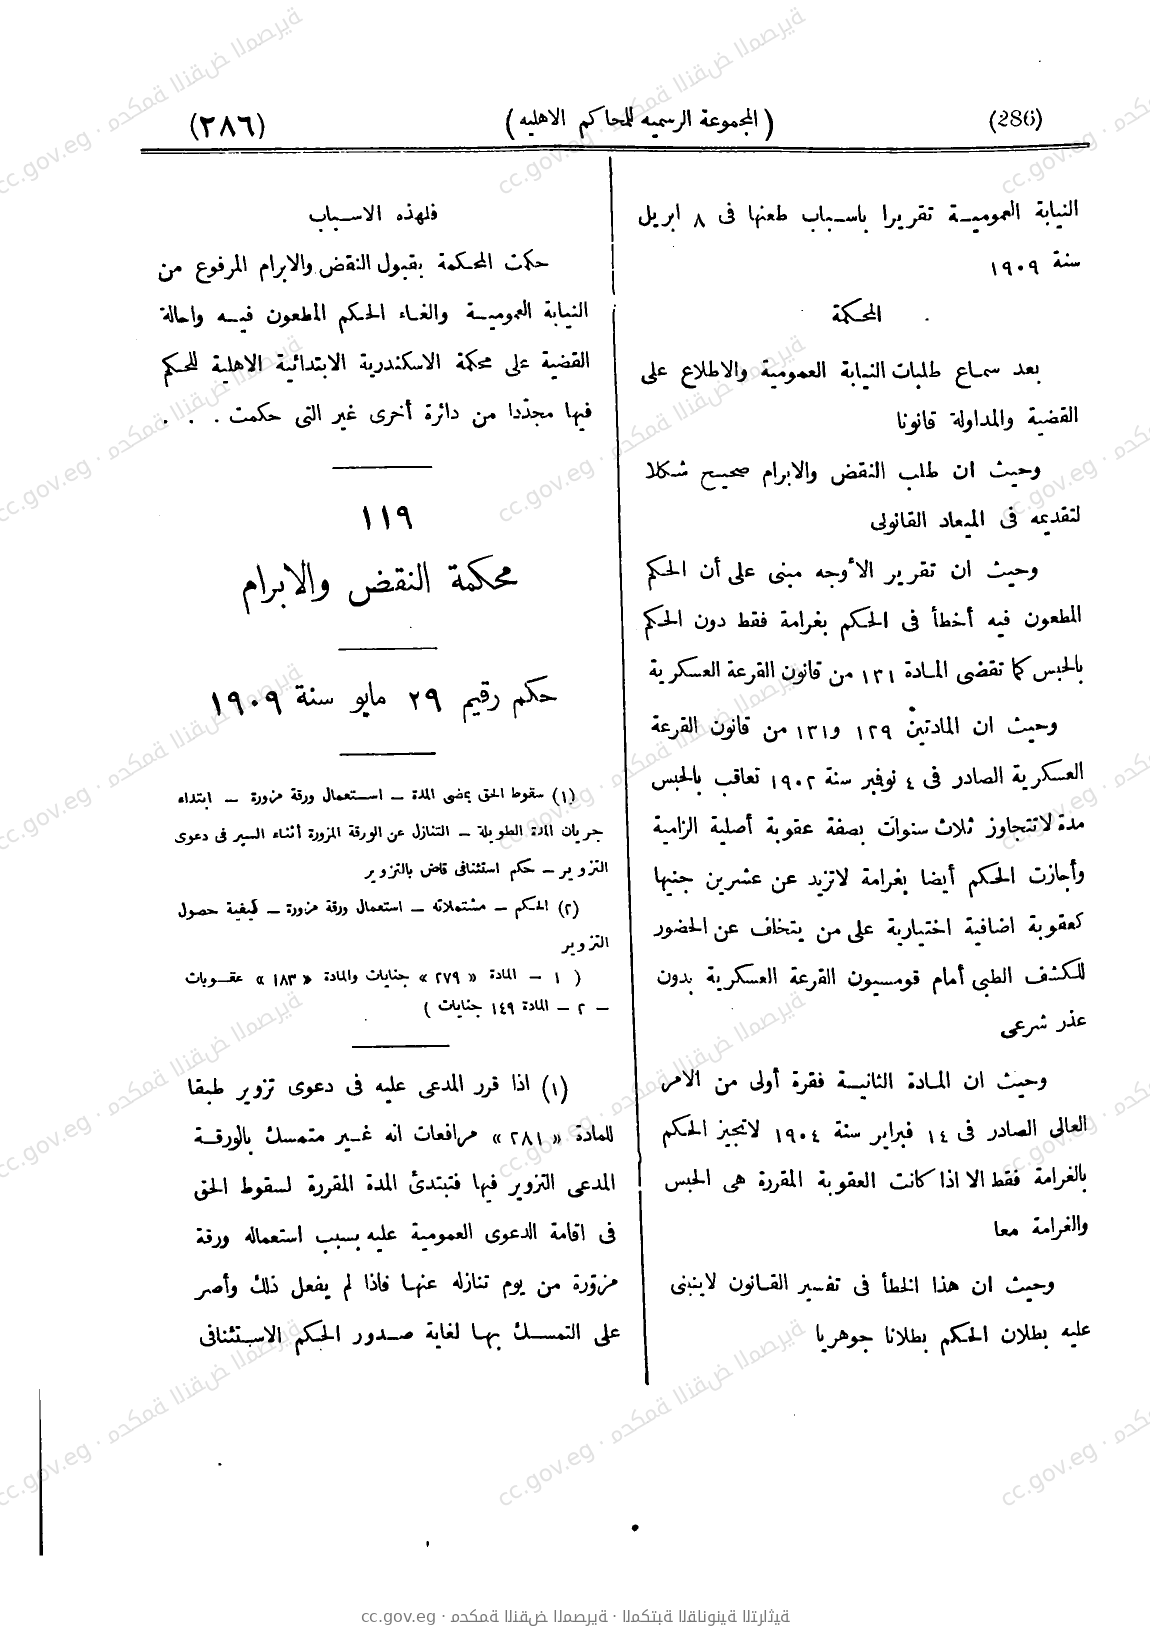 (286)
(المجموعة الرسميه للمحاكم الاهليه)
(٢٨٦)
النيابة العموميـة تقريرا باسـباب طعنها فى ٨ ابريل
سنة ١٩٠٩
المحكمة
بعد سماع طلبات النيابة العمومية والاطلاع على
القضية والمداولة قانونا
وحيث ان طلب النقض والابرام صحيح شكلا
لتقديمه فى الميعاد القانونى
وحيث ان تقرير الأوجه مبنى على أن الحكم
المطعون فيه أخطأ فى الحكم بغرامة فقط دون الحكم
بالحبس كما تقضى المادة ١٣١ من قانون القرعة العسكرية
وحيث ان المادتين ١٢٩ و١٣١ من قانون القرعة
العسكرية الصادر فى ٤ نوفمبر سنة ١٩٠٢ تعاقب بالحبس
مدة لاتتجاوز ثلاث سنوات بصفة عقوبة أصلية الزامية
وأجازت الحكم أيضا بغرامة لاتزيد عن عشرين جنيها
كعقوبة اضافية اختيارية على من يتخاف عن الحضور
للكشف الطبى أمام قومسيون القرعة العسكرية بدون
عذر شرعى
وحيث ان المادة الثانيـة فقرة أولى من الامر
العالى الصادر فى ١٤ فبراير سنة ١٩٠٤ لاتجيز الحكم
بالغرامة فقط الا اذا كانت العقوبة المقررة هى الحبس
والغرامة معا
وحيث ان هذا الخطأ فى تفسير القـانون لاينبنى
عليه بطلان الحكم بطلانا جوهريا
فلهذه الاسـباب
حكمت المحكمة بقبول النقض والابرام المرفوع من
النيابة العموميـة والغـاء الحكم المطعون فيـه واحالة
القضية على محكمة الاسكندرية الابتدائية الاهلية للحكم
فيها مجدّدا من دائرة أخرى غير التى حكمت . . .
١١٩
محكمة النقض والابرام
حكم رقيم ٢٩ مايو سنة ١٩٠٩
(١) سقوط الحق بمضى المدة – اسـتعمال ورقة مزورة – ابتداء
جريان المدة الطويلة – التنازل عن الورقة المزورة أثناء السير فى دعوى
التزوير – حكم استئنافى قاض بالتزوير
(٢) الحكم – مشتملاته – استعمال ورقة مزورة – كيفية حصول
التزوير
( ١ – المادة « ٢٧٩ » جنايات والمادة « ١٨٣ » عقـوبات
– ٢ – المادة ١٤٩ جنايات )
(١) اذا قرر المدعى عليه فى دعوى تزوير طبقا
للمادة « ٢٨١ » مرافعات انه غـير متمسك بالورقـة
المدعى التزوير فيها فتبتدئ المدة المقررة لسقوط الحق
فى اقامة الدعوى العمومية عليه بسبب استعماله ورقة
مزوّرة من يوم تنازله عنهـا فاذا لم يفعل ذلك وأصر
على التمسـك بهـا لغاية صـدور الحـكم الاسـتئنافى
cc.gov.eg · محكمة النقض المصرية · المكتبة القانونية التراثية